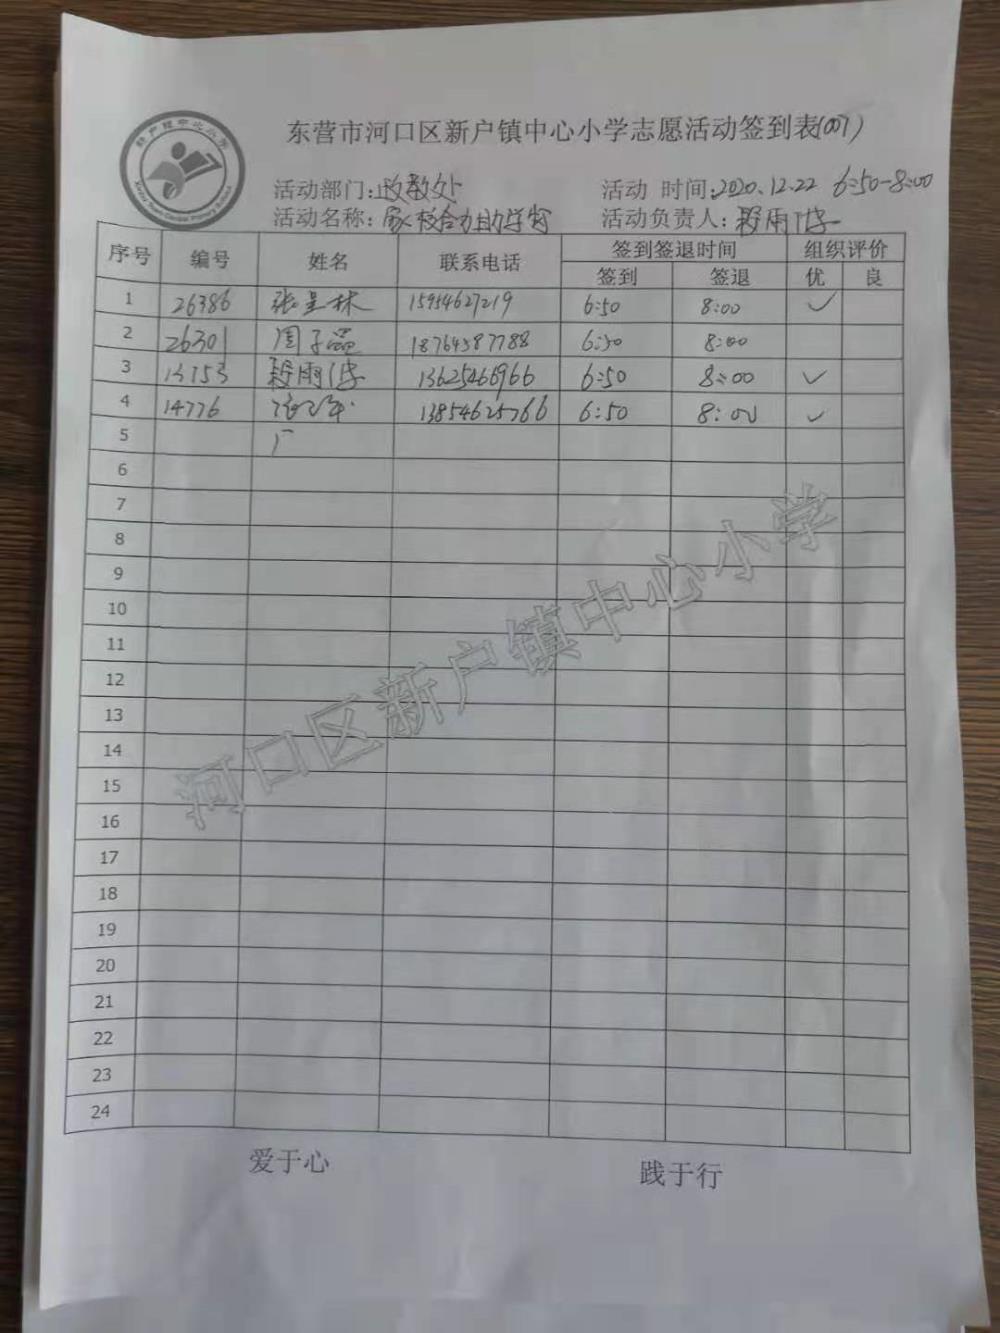 新户镇中心小学
东营市河口区新户镇中心小学志愿活动签到表(007)
活动部门:政教处 活动 时间:2020.12.22 6:50-8:00
活动名称: 家校合力助学育 活动负责人: 段雨
序号 编号 姓名 联系电话 签到签退时间 组织评价
签到 签退 优 良
1 26386 张呈林 15954627219 6:50 8:00 ✓
2 26301 周子 18764587788 6:50 8:00
3 13153 段雨 13625466966 6:50 8:00 ✓
4 14776 13854625766 6:50 8:00 ✓
5
6
7
8
9
10
11
12
13
14
15
16
17
18
19
20
21
22
23
24
河口区新户镇中心小学
爱于心 践于行